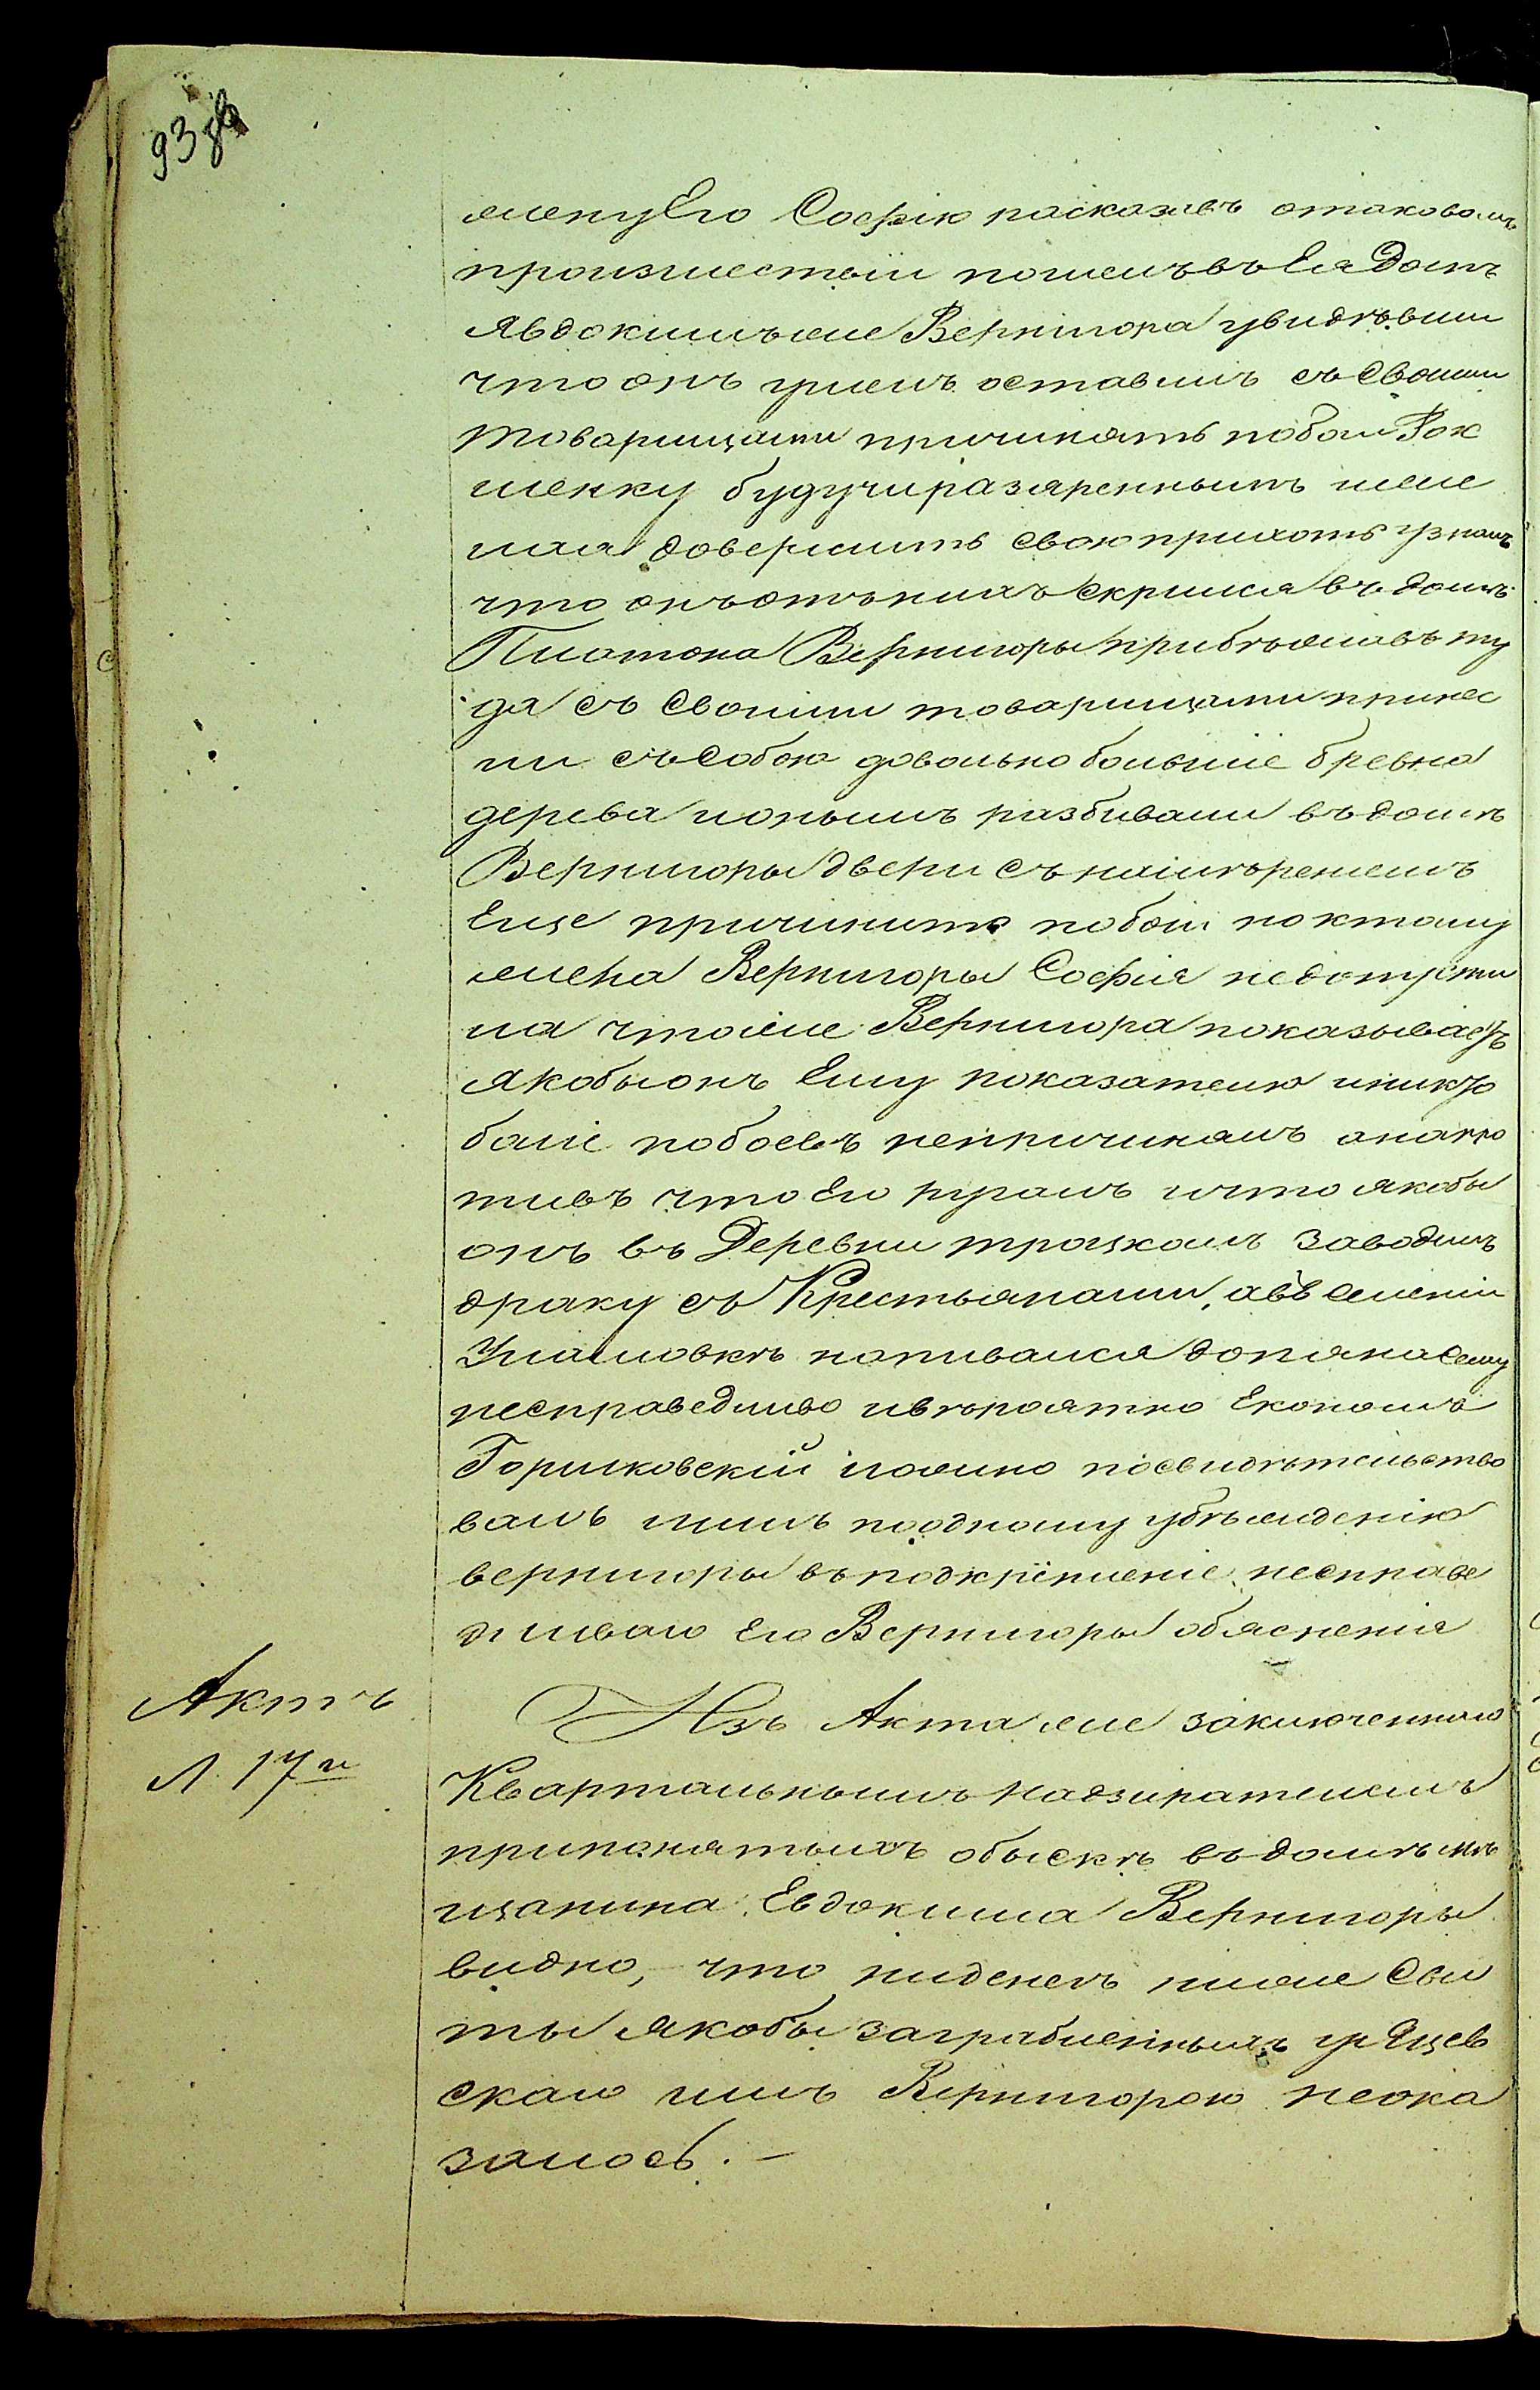 93 об
жену Его Софію расказавъ отаковомъ
произшествіи пошелъ въ Ея Домъ
Явдокимъ же Вернигора увидѣвши
что онъ ушелъ оставилъ съ Своими
товарищами причинять побои Рок
шенку будучи разяреннымъ и же
лая довершить свою прихоть узналъ
что онъ отъ нихъ Скрился въ домѣ
Платона Вернигоры прибѣжавъ ту
да съ Своими товарищами принес
ли съ Собою довольно большіе бревна
дерева и онымъ разбивали въ домѣ
Вернигоры двери съ наімѣреніемъ
Еще причинить побои но к тому
жена Вернигоры Софія недопусти
ла что же Вернигора показываетъ
якобы онъ Ему показателю никако
баіе побоевъ непричинялъ а напро
тивъ что Его ругалъ и что якобы
онъ въ Деревни троцкомъ заводилъ
драку съ Крестьянами, а въ селеніи
Ульяновкѣ напивался допьяна Сему
несправедливо и вѣроятно Економъ
Горчковскій ложно посвидѣтельство
валъ лишъ по одному убѣжденію
вернигоры въ подкрѣпленіе несправе
дливаго Его Вернигоры обясненія
Актъ
Л. 17й
Изъ Акта же заключеннаго
Квартальнымъ Надзирателемъ
при понятыхъ обыскѣ въ домѣ мѣ
щанина Евдокима Вернигоры
видно, что ни денегъ ниже Сви
ты якобы заграбленныхъ у Яцев
скаго имъ Вернигорою неока
залось. —